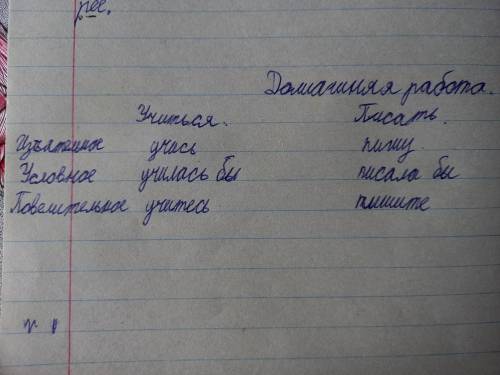 рее.
Домашняя работа.
Учиться. Писать.
Изъявительное учусь пишу
Условное училась бы писала бы
Повелительное учитесь пишите